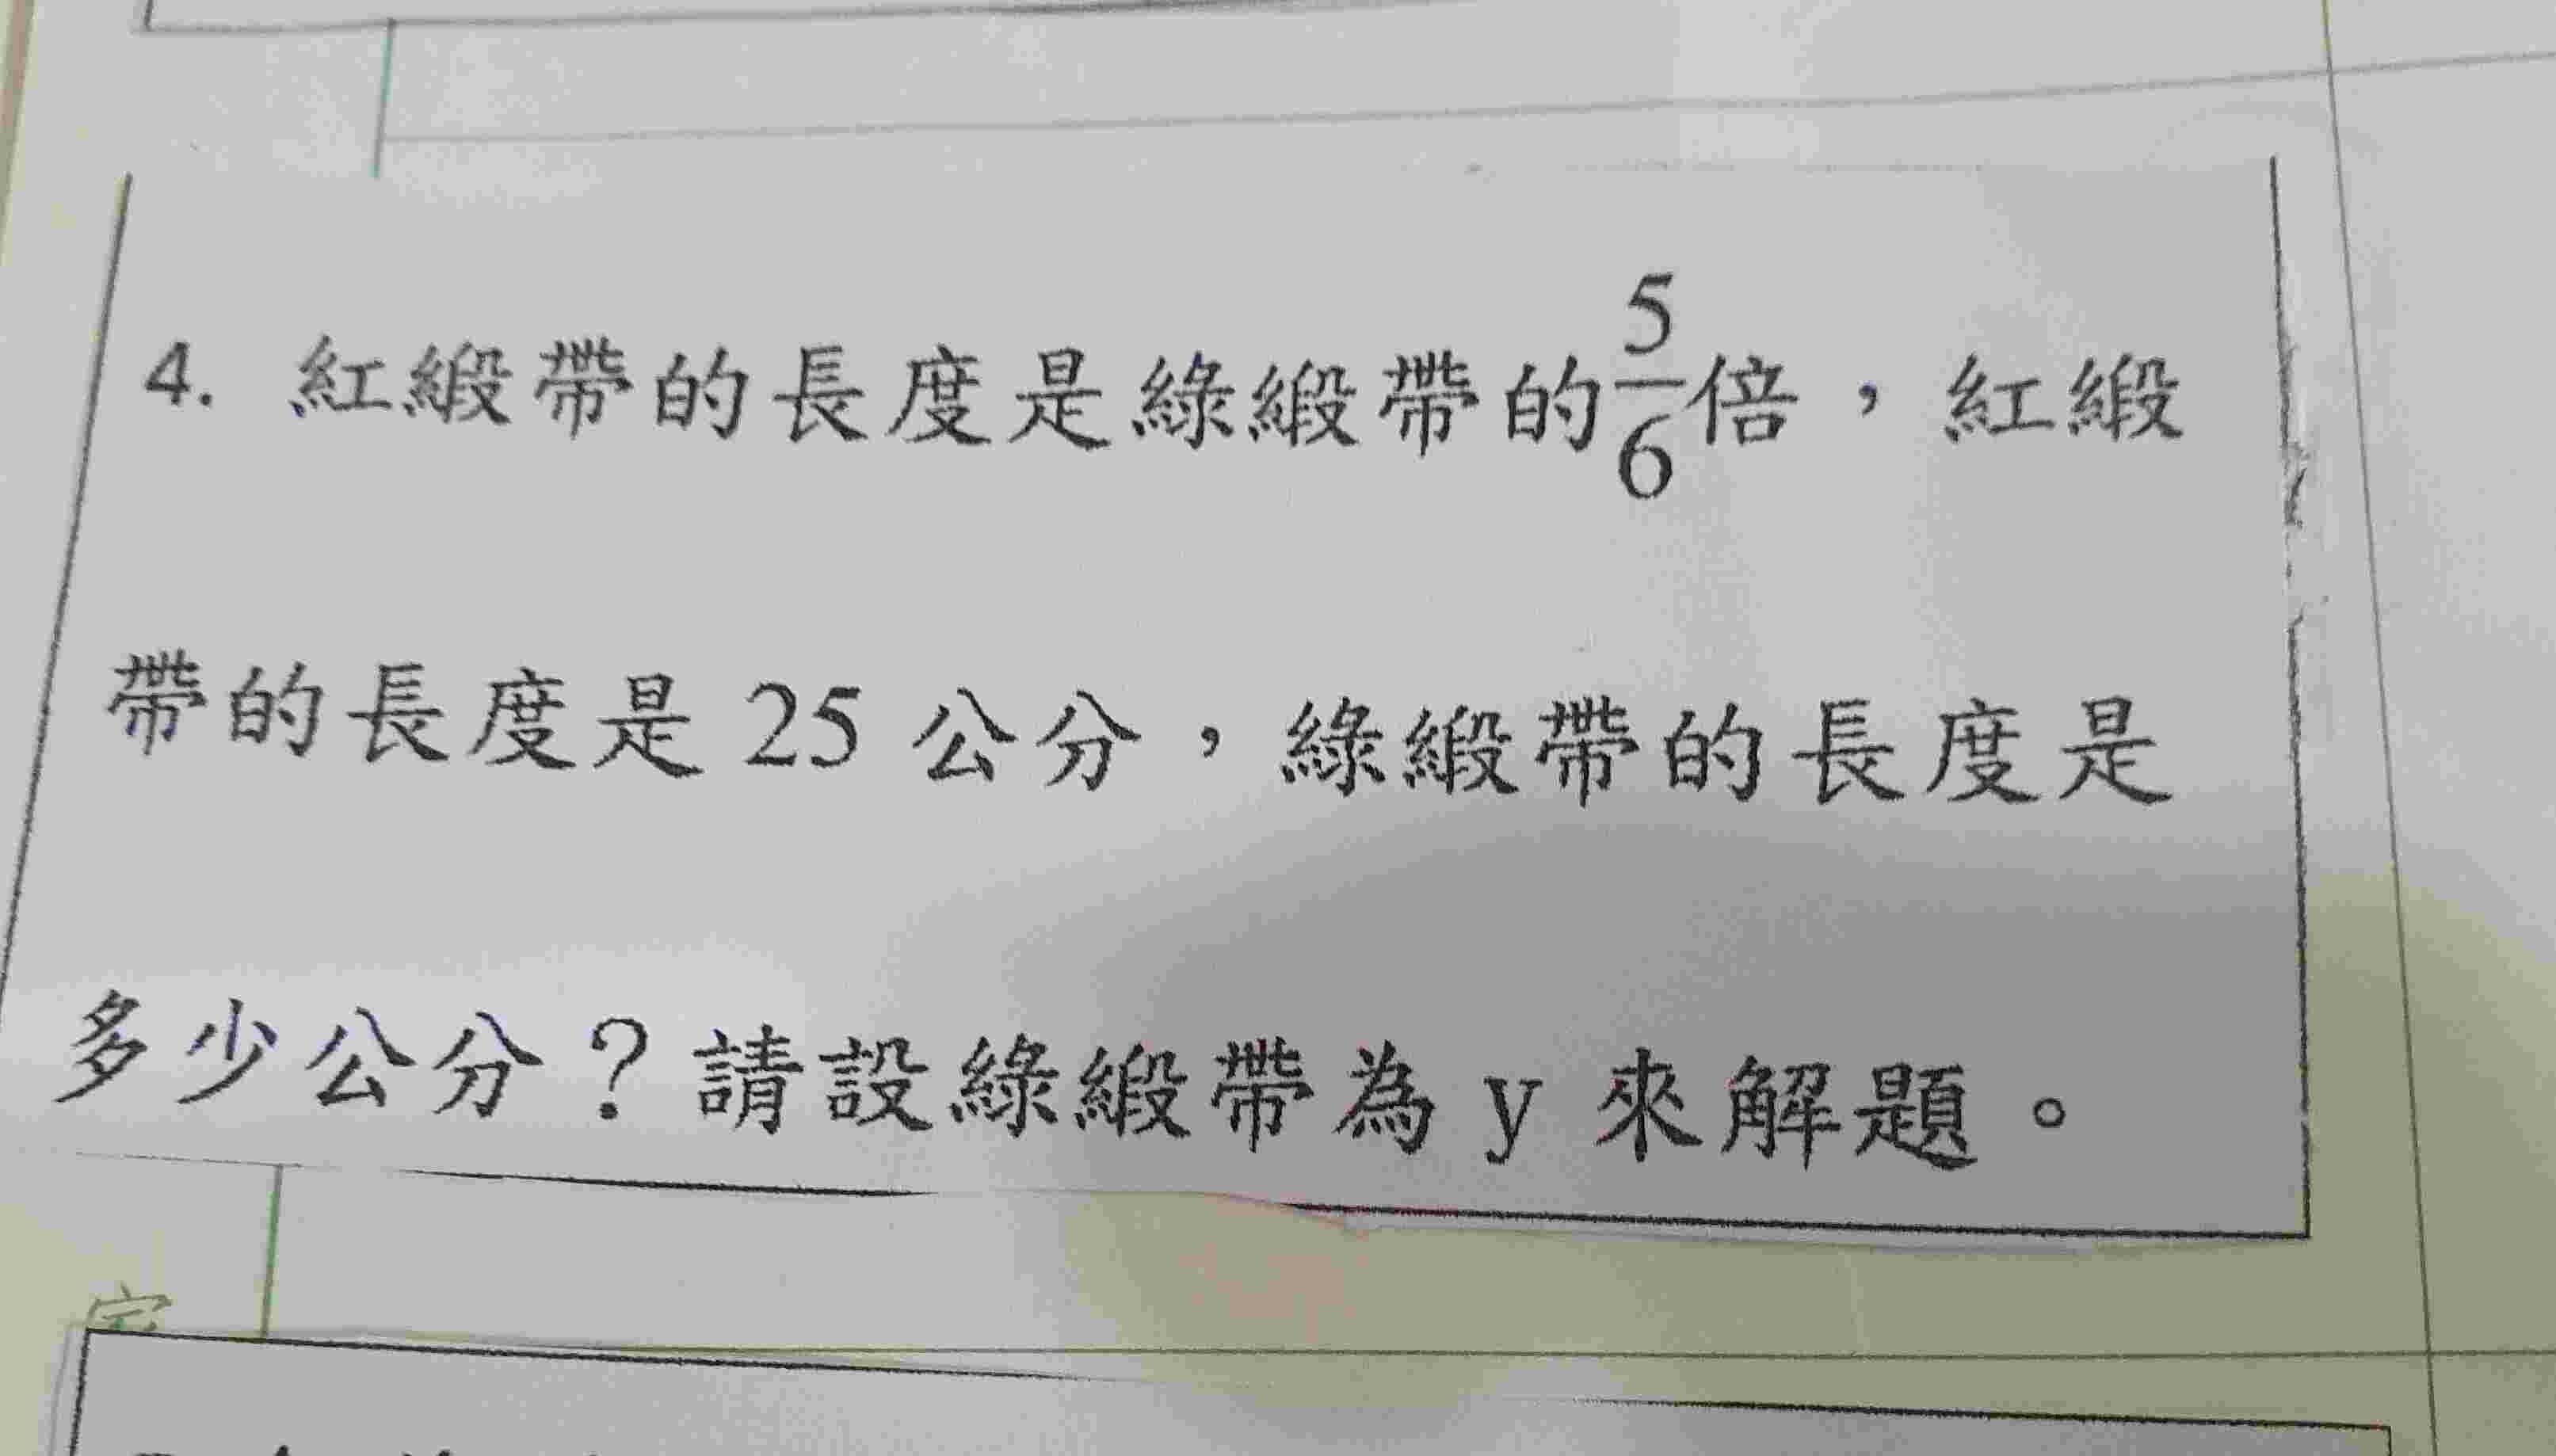 4. 紅緞帶的長度是綠緞帶的5/6倍，紅緞
帶的長度是 25 公分，綠緞帶的長度是
多少公分？請設綠緞帶為 y 來解題。